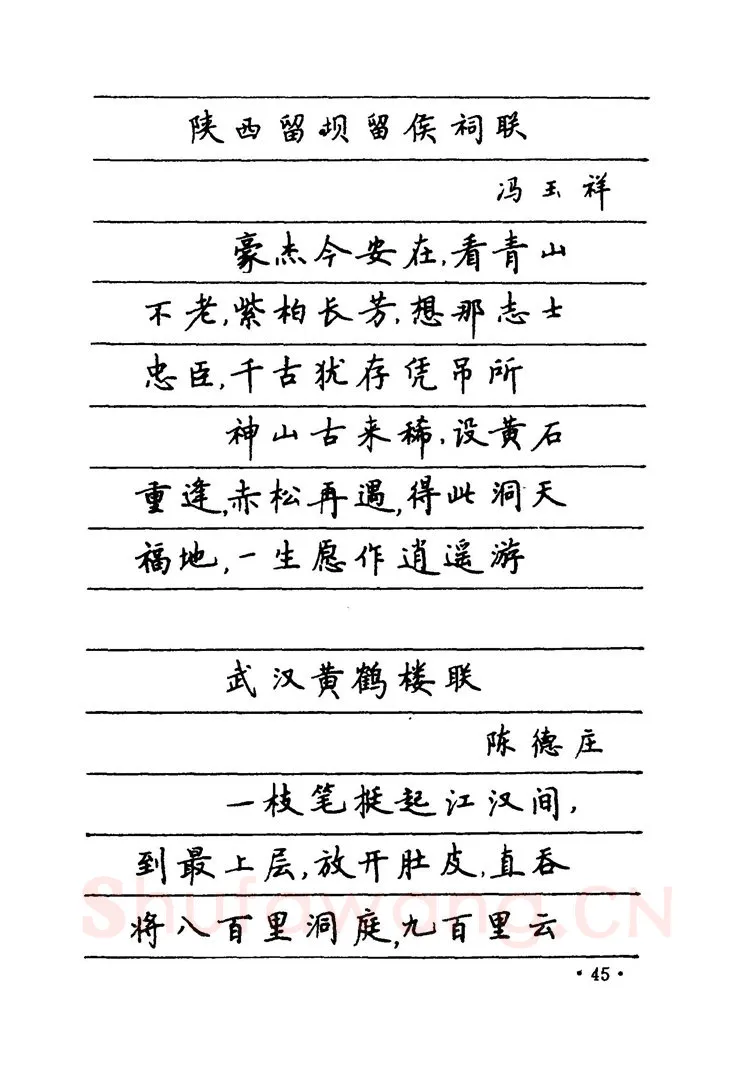 陕西留坝留侯祠联
冯玉祥
豪杰今安在,看青山
不老,紫柏长芳,想那志士
忠臣,千古犹存凭吊所
神山古来稀,设黄石
重逢,赤松再遇,得此洞天
福地,一生愿作逍遥游
武汉黄鹤楼联
陈德庄
一枝笔挺起江汉间,
到最上层,放开肚皮,直吞
将八百里洞庭,九百里云
Shufawang.CN
·45·